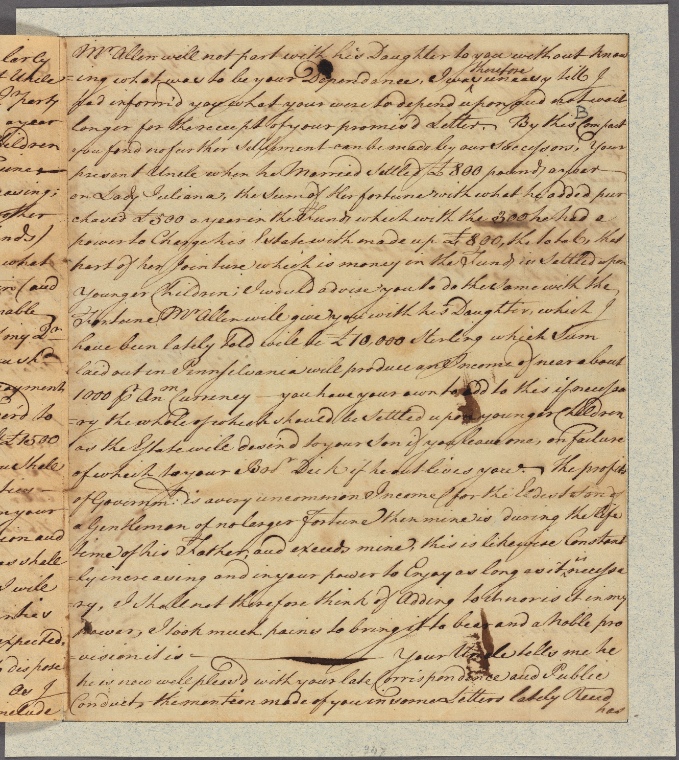 larly
t Uncle
party
a year
hildren
easing;
other
what
and
nable
my Dr
payment
£1500
shall
in your
and
shall
I will
expected,
dispose
As I
include
Mr. Allen will not part with his Daughter to you without know
-ing what was to be your Dependance, I was therefore uneasy till I
had inform'd you what you were to depend upon, and not wait
longer for the receipt of your promis'd Letter. By this Compact
B
you find no further Settlement can be made by our Successors. Your
present Uncle when he Married Settled £800 pounds a year
on Lady Juliana, the Sum of Her fortune with what he added pur
chased £500 a year in the Funds which with the 300 he had a
power to Charge his Estate with made up £800, the total, that
part of her Jointure which is money in the Funds is Settled upon
Younger Children; I would advise you to do the same with the
Fortune Mr. Allen will give you with his Daughter, which I
have been lately told will be £10,000 Sterling which Sum
laid out in Pennsilvania will produce an Income of near about
1000 Pr. Anm. Currency — you have your own to add to this if necessa
-ry the whole of which should be Settled upon younger Children
as the Estate will desend to your Son if you leave one, on failure
of which to your Bror. Dick if he out lives you. — The profits
of Governmt. is a very uncommon Income for the Eldest Son of
a Gentleman of no larger Fortune then mine is during the life
time of his Father, and exceeds mine, this is likewise Constant
ly increasing and in your power to Enjoy as long as it is necessa
-ry, I shall not therefore think of Adding to it nor is it in my
power, I took much pains to bring it to bear and a Noble pro
vision it is — Your Uncle tells me he
he is now well pleas'd with your late Correspondance and Public
Conduct, the mention made of you in some Letters lately Reced
has
347